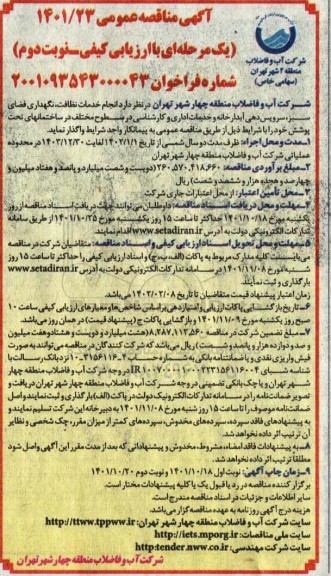 آگهی مناقصه عمومی ۱۴۰۱/۲۳
(یک مرحله‌ای با ارزیابی کیفی-نوبت دوم)
شماره فراخوان ۲۰۰۱۰۹۳۵۴۳۰۰۰۰۴۳
شرکت آب و فاضلاب
منطقه ۴ شهر تهران
(سهامی خاص)
شرکت آب و فاضلاب منطقه چهار شهر تهران در نظر دارد انجام خدمات نظافت، نگهداری فضای
سبز، سرویس‌دهی آبدارخانه و خدمات اداری و کارشناسی در سطوح مختلف در ساختمانهای تحت
پوشش خود را با شرایط ذیل از طریق مناقصه عمومی به پیمانکار واجد شرایط واگذار نماید.
۱-مدت و محل اجراء: ظرف مدت دو سال شمسی از تاریخ ۱۴۰۲/۱/۱ لغایت ۱۴۰۳/۱۲/۳۰ در محدوده
عملیاتی شرکت آب و فاضلاب منطقه چهار شهر تهران
۲-مبلغ برآوردی مناقصه: ۲۶۰،۵۷۰،۴۱۸،۶۶۰ (دویست و شصت میلیارد و پانصد و هفتاد میلیون و
چهارصد و هجده هزار و ششصد و شصت) ریال
۳-محل تأمین اعتبار: از محل اعتبارات جاری شرکت
۴-مهلت و محل دریافت اسناد مناقصه: داوطلبان می‌توانند جهت دریافت اسناد مناقصه از روز
یکشنبه مورخ ۱۴۰۱/۱۰/۱۸ حداکثر تا ساعت ۱۵ روز یکشنبه مورخ ۱۴۰۱/۱۰/۲۵ از طریق سامانه
تدارکات الکترونیکی دولت به آدرس www.setadiran.ir اقدام نمایند.
۵-مهلت و محل تحویل اسناد ارزیابی کیفی و اسناد مناقصه: متقاضیان شرکت در مناقصه
می‌بایست کلیه مدارک مربوط به پاکات (الف، ب، ج) و اسناد ارزیابی کیفی را حداکثر تا ساعت ۱۵ روز
شنبه مورخ ۱۴۰۱/۱۱/۰۸ در سامانه تدارکات الکترونیکی دولت به آدرس www.setadiran.ir
بارگذاری و ثبت نمایند.
زمان اعتبار پیشنهاد قیمت متقاضیان تا تاریخ ۱۴۰۲/۰۲/۰۸ می‌باشد.
۶-تاریخ بازگشایی پاکات ارزیابی و امتیازدهی بر اساس شاخص‌ها و معیارهای ارزیابی کیفی ساعت ۱۰
صبح روز یکشنبه مورخ ۱۴۰۱/۱۱/۰۹ و بازگشایی پاکات ج (پیشنهاد قیمت) در همان روز می‌باشد.
۷-مبلغ تضمین شرکت در مناقصه ۸،۲۸۷،۱۱۲،۵۶۰ (هشت میلیارد و دویست و هشتاد و هفت میلیون
و صد و دوازده هزار و پانصد و شصت) ریال می‌باشد که شرکت کنندگان در مناقصه می‌توانند به صورت
فیش واریزی نقدی و یا ضمانتنامه بانکی به شماره حساب نزد بانک رسالت با
شناسه شبای در وجه شرکت آب و فاضلاب منطقه چهار
شهر تهران و یا چک بانکی تضمینی در وجه شرکت آب و فاضلاب منطقه چهار شهر تهران دریافت و
تصویر ضمانتنامه را در سامانه تدارکات الکترونیکی دولت در پاکت (الف) بارگذاری و ثبت نمایند و اصل
ضمانتنامه موصوف را تا ساعت ۱۵ روز شنبه مورخ ۱۴۰۱/۱۱/۰۸ به دبیرخانه این شرکت تسلیم نمایند و
به پیشنهادهای فاقد سپرده، سپرده‌های مخدوش، سپرده‌های کمتر از میزان مقرر، چک شخصی و نظایر
آن ترتیب اثر داده نخواهد شد.
۸-به پیشنهادات فاقد امضاء، مشروط، مخدوش و پیشنهاداتی که بعد از مدت مقرر این آگهی واصل شود
مطلقا ترتیب اثر داده نخواهد شد.
۹-زمان چاپ آگهی: نوبت اول ۱۴۰۱/۱۰/۱۸ و نوبت دوم ۱۴۰۱/۱۰/۲۰
برگزار کننده مناقصه در رد یا قبول یک یا کلیه پیشنهادات مختار است.
سایر اطلاعات و جزئیات در اسناد مناقصه مندرج است.
هزینه درج آگهی روزنامه به عهده مناقصه گزار می‌باشد.
سایت شرکت آب و فاضلاب منطقه چهار شهر تهران: http://ttww.tppww.ir
سایت ملی مناقصات: http://iets.mporg.ir
سایت شرکت مهندسی: http:tender.nww.co.ir
شرکت آب و فاضلاب منطقه چهار شهر تهران